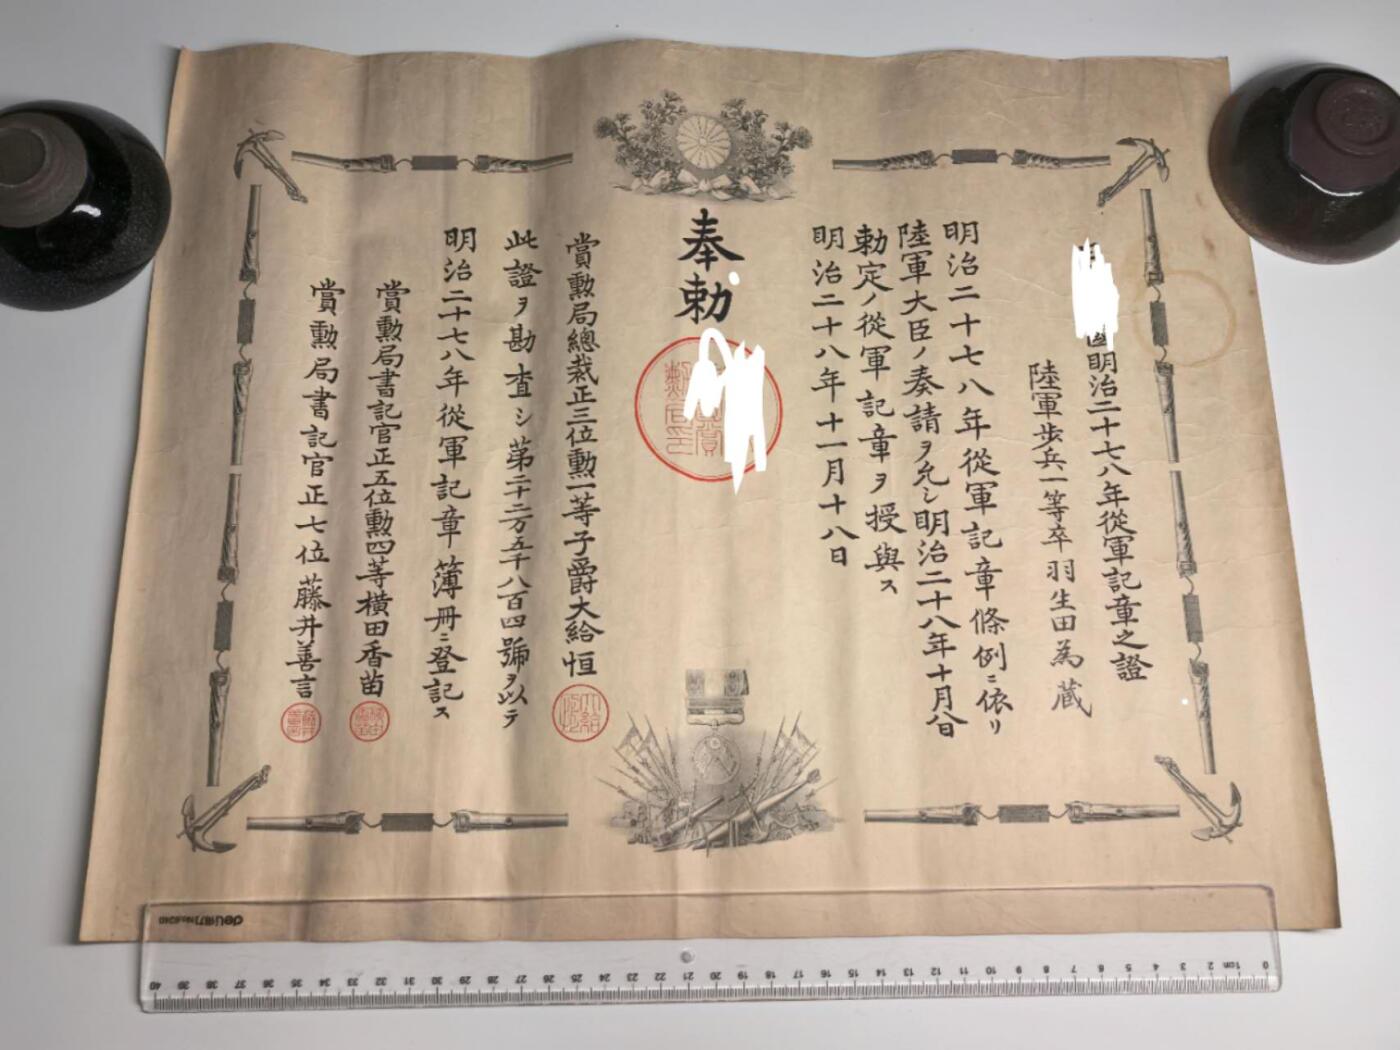 國明治二十七八年從軍記章之證
陸軍歩兵一等卒羽生田為蔵
明治二十七八年從軍記章條例ニ依リ
陸軍大臣ノ奏請ヲ允シ明治二十八年十月八日
勅定ノ從軍記章ヲ授與ス
明治二十八年十一月十八日
奉勅
賞勲局總裁正三位勲一等子爵大給恒
此證ヲ勘査シ第二十二万五千八百四號ヲ以テ
明治二十七八年從軍記章簿冊ニ登記ス
賞勲局書記官正五位勲四等横田香苗
賞勲局書記官正七位藤井善言
deli 得力 No.6240
0 1cm 2 3 4 5 6 7 8 9 10 11 12 13 14 15 16 17 18 19 20 21 22 23 24 25 26 27 28 29 30 31 32 33 34 35 36 37 38 39 40